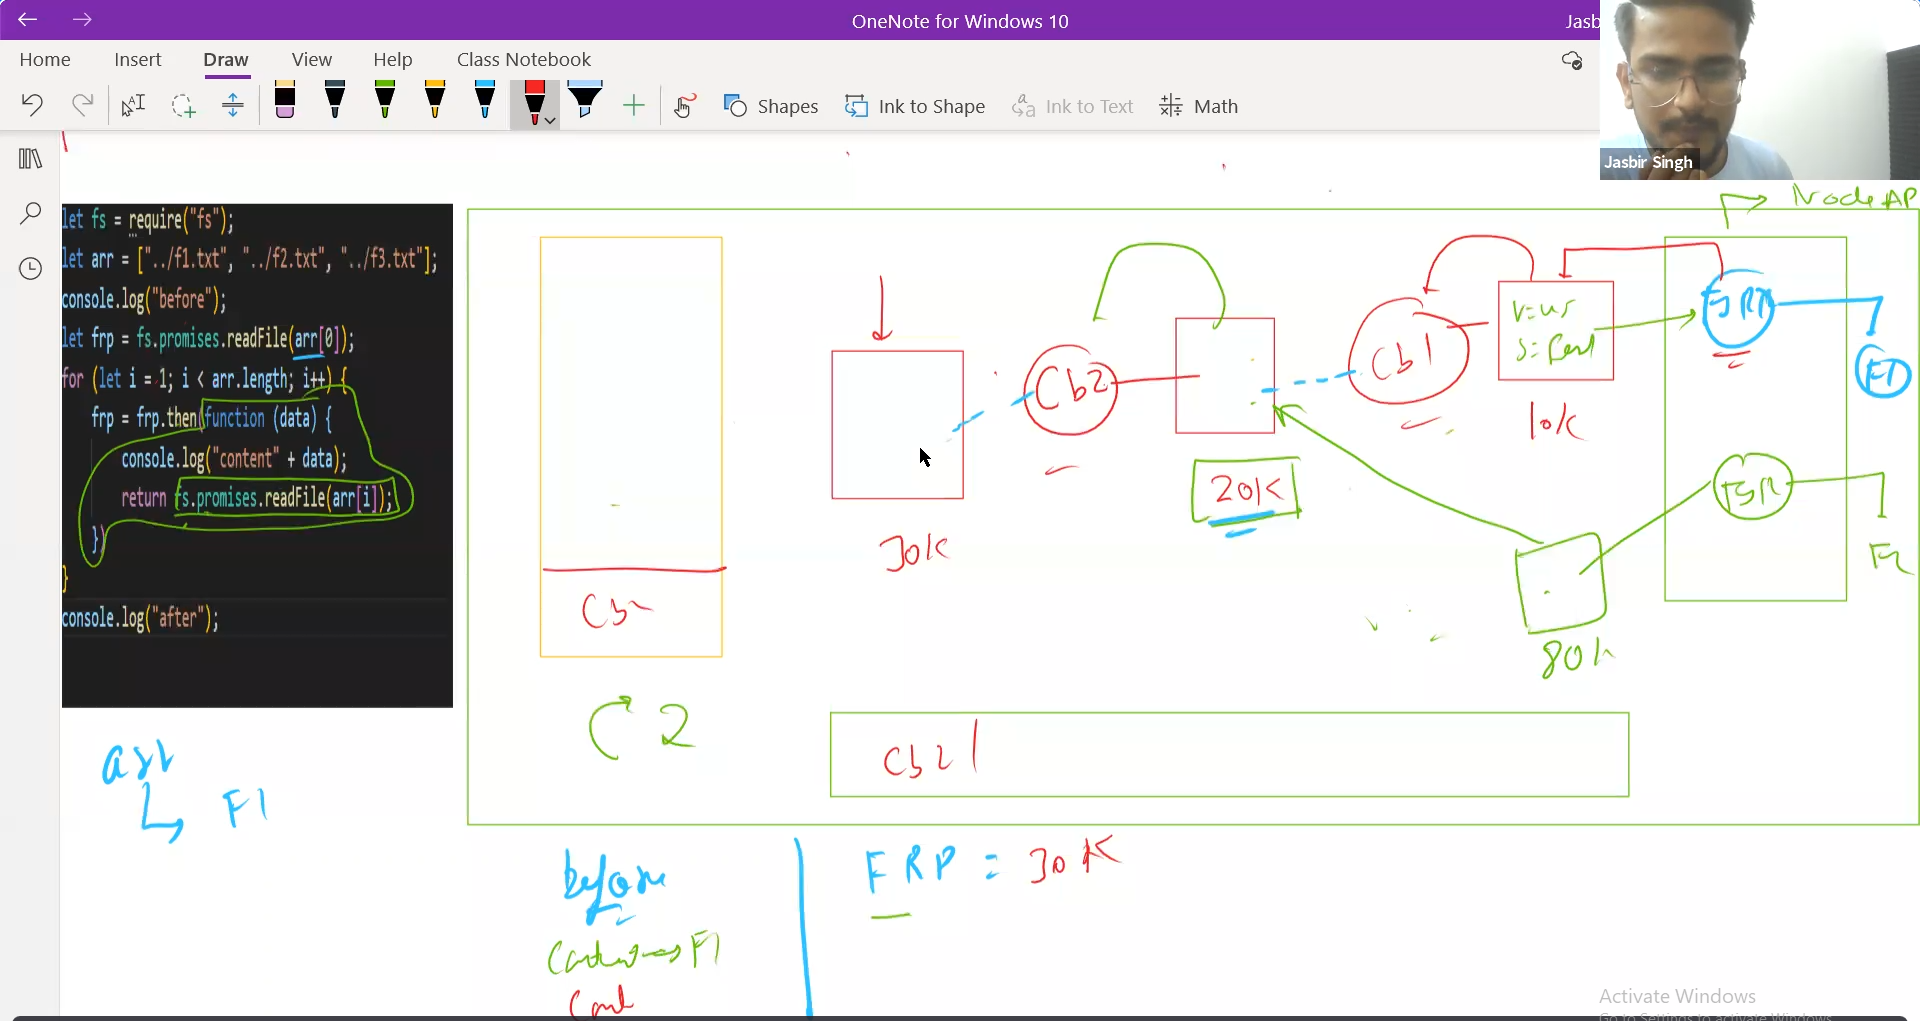 OneNote for Windows 10
Jasb
Home Insert Draw View Help Class Notebook
Shapes Ink to Shape Ink to Text Math
Jasbir Singh
Node AP
let fs = require("fs");
let arr = ["../f1.txt", "../f2.txt", "../f3.txt"];
console.log("before");
let frp = fs.promises.readFile(arr[0]);
for (let i = 1; i < arr.length; i++) {
frp = frp.then(function (data) {
console.log("content" + data);
return fs.promises.readFile(arr[i]);
})
}
console.log("after");
Cb2
Cb1
10K
20K
30K
F1
80K
2
Cb2
arr
F1
before
FRP = 30K
Activate Windows
Go to Settings to activate Windows.